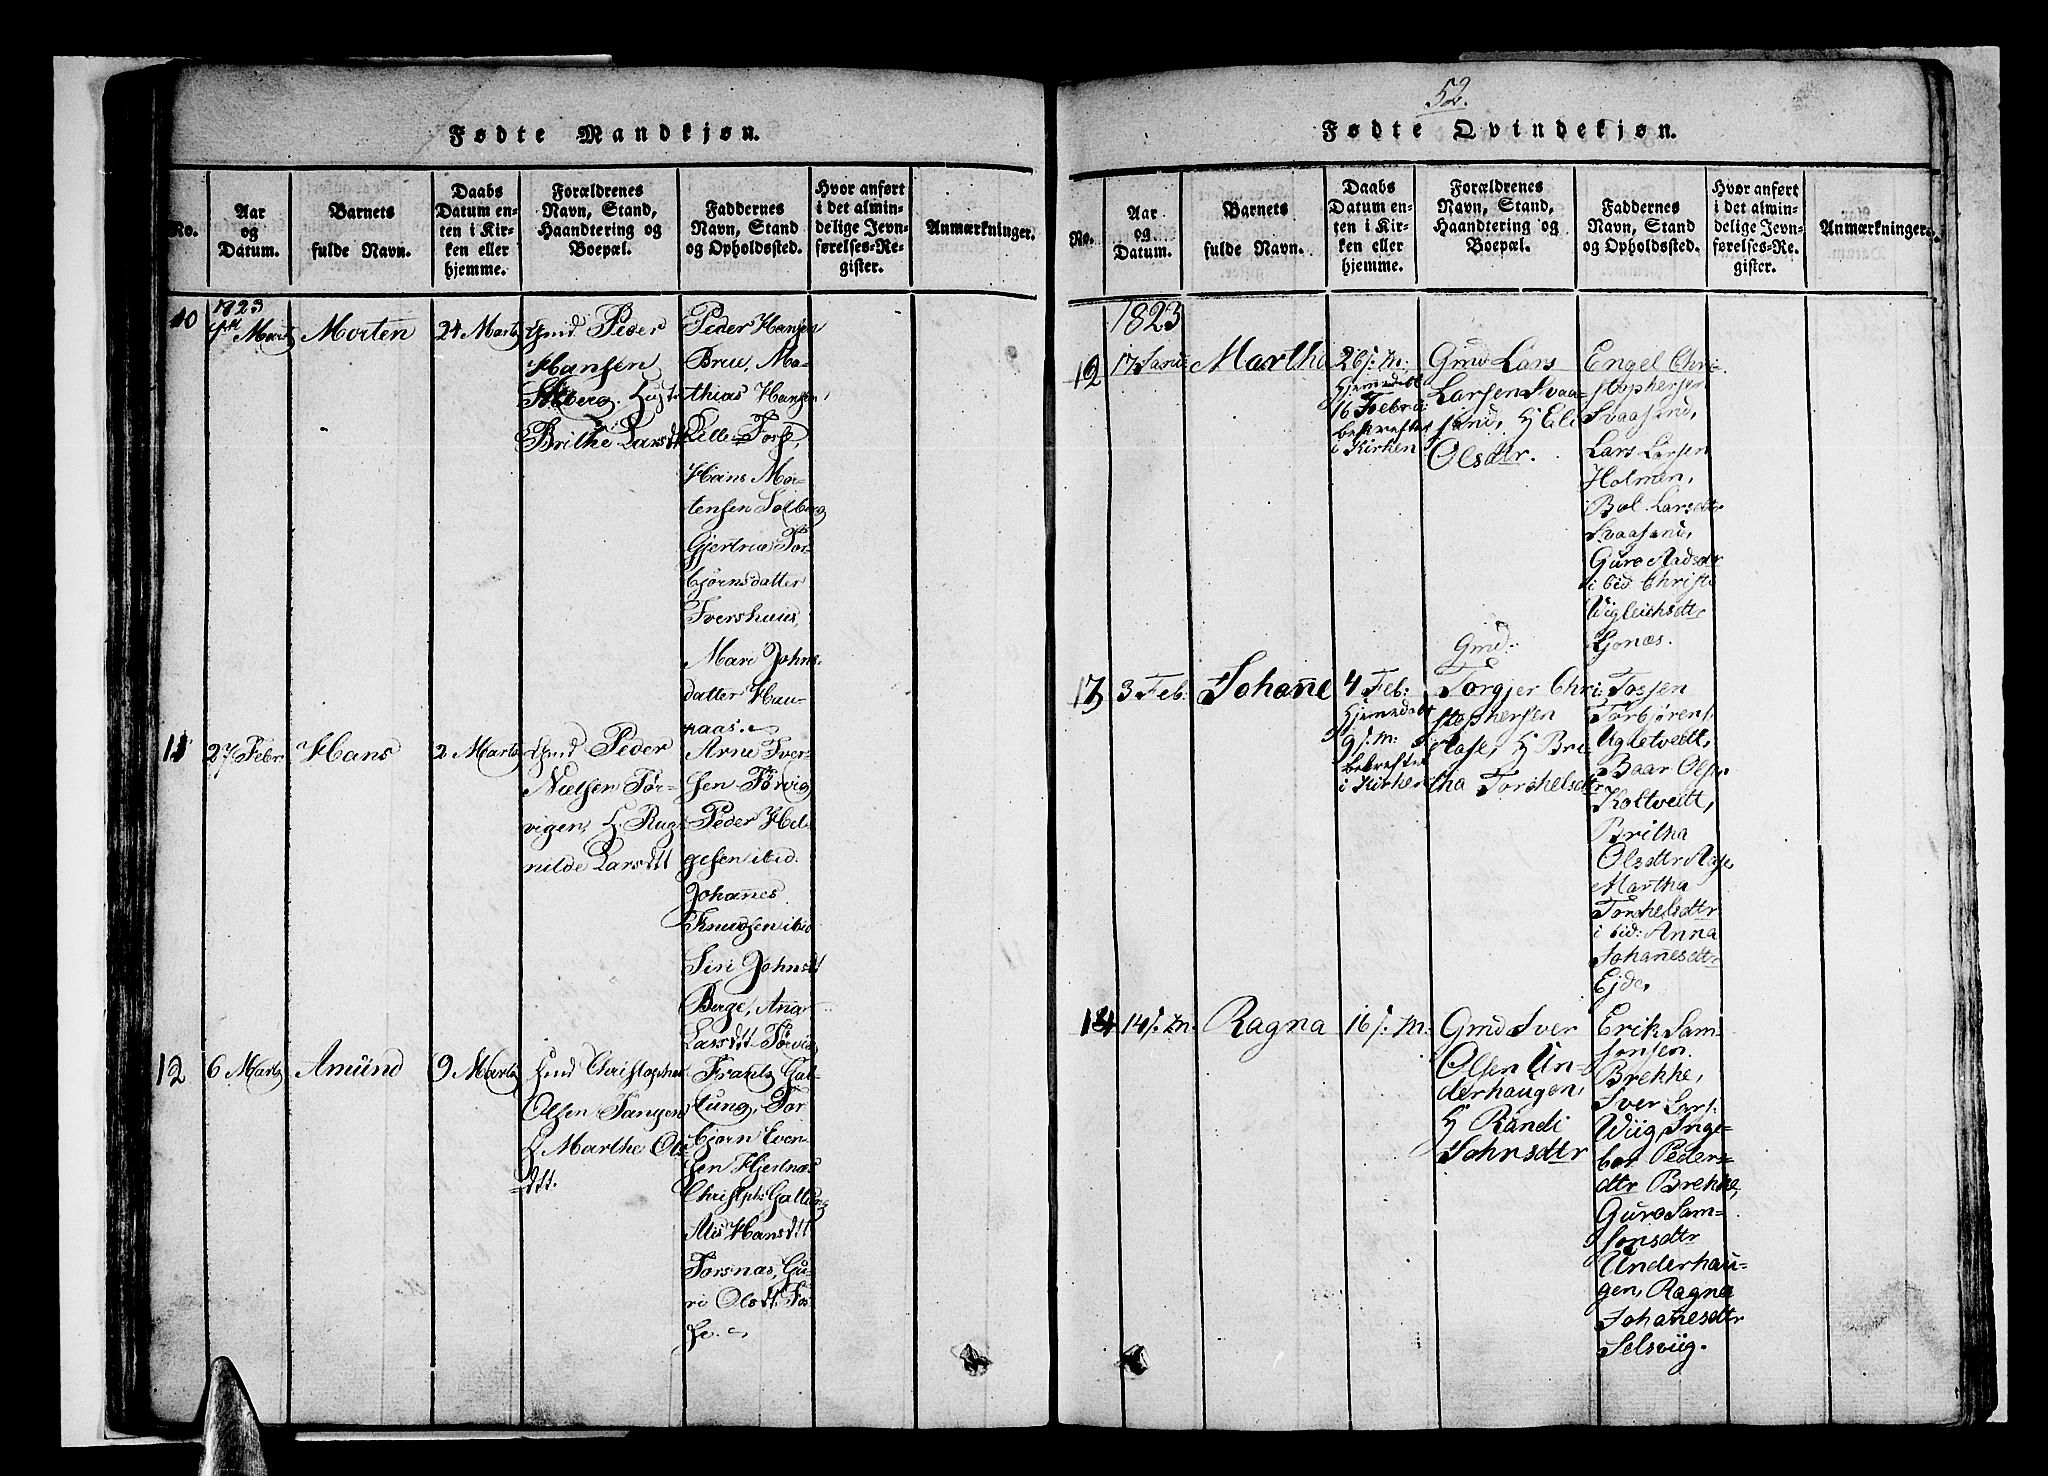 Fødte Mandkjøn.
No.
Aar
og
Datum.
Barnets
fulde Navn.
Daabs
Datum en-
ten i Kir-
ken eller
hjemme.
Forældrenes
Navn, Stand,
Haandtering og
Boepæl.
Faddernes
Navn, Stand
og Opholdssted.
Hvor anført
i det almin-
delige Jevn-
førelses-Re-
gister.
Anmærkninger.
10
1823
Marts
Morten
24 Marts
Gmd Peder
Hansen
Solberg.
Brithe Larsdtt
Peder Hansen
Brue, Ma-
thias Hansen
Lille-Torse,
Hans Mor-
tensen Solberg
Gjertrue Tor-
bjørnsdatter
Ivershuus,
Mari Johns-
datter Hau-
kaas.
11
27 Febr
Hans
2 Marts
Gmd Peder
Nielsen Tør-
vigen, H. Rag-
nilde Larsdtt
Arne Iver-
sen Tørvig
Peder Hel-
gesen ibid.
Johan̄es
Knudsen ibid
Siri Johnsdtt
Berge, Anna
Larsdtt Tørvig
12
6 Marts
Amund
9 Marts
Gmd Christopher
Olsen Tangen
H Marthe Ols-
dtt.
Frantz Gal-
tung, Tor
bjørn Even-
sen Hjertnæs
Christoph Galtung
Alis Hansdtt
Torsnæs, Gu-
ri Olsdt. Tor
se.
52.
Fødte Qvindekjøn.
No.
Aar
og
Datum.
Barnets
fulde Navn.
Daabs
Datum en-
ten i Kir-
ken eller
hjemme.
Forældrenes
Navn, Stand,
Haandtering og
Boepæl.
Faddernes
Navn, Stand
og Opholdssted.
Hvor anført
i det almin-
delige Jevn-
førelses-Re-
gister.
Anmærkninger.
1823
12
17 Janu:
Martha
26 s. M.
Hjemedøbt
16 Febru:
bekreftet
i Kirken
Gmd Lars
Larsen Svaa-
sand, H Eli
Olsdtr.
Engel Chri-
stophersen
Svaasand,
Lars Larsen
Holmen,
Bol Larsdtr
Svaasand,
Guro Aadsdtr
ibid Christi
Vigleichsdtr
Gjonæs.
13
3 Feb:
Johan̄e
4 Feb:
Hjemedøbt
9 s. M:
bekreftet
i Kirken
Gmd:
Torgjer Chri
stophersen
Aase, H Bri
tha Torchelsdtr
Tosten
Torbjørens.
Agletveitt,
Baar Ols.
Koltveitt,
Britha
Olsdtr Aase,
Martha
Torchelsdtr
ibid: Anna
Johan̄esdtr
Ejde,
14
14 s. M.
Ragna
16 s. M.
Gmd Iver
Olsen Un-
derhaugen,
H Randi
Johnsdtr
Erik Sam-
sonsen
Brekke,
Iver Lars.
Wiig, Inge-
bor Peders-
dtr Brekke,
Guro Sam-
sonsdtr
Underhau-
gen, Ragna
Johan̄esdtr
Selsviig.